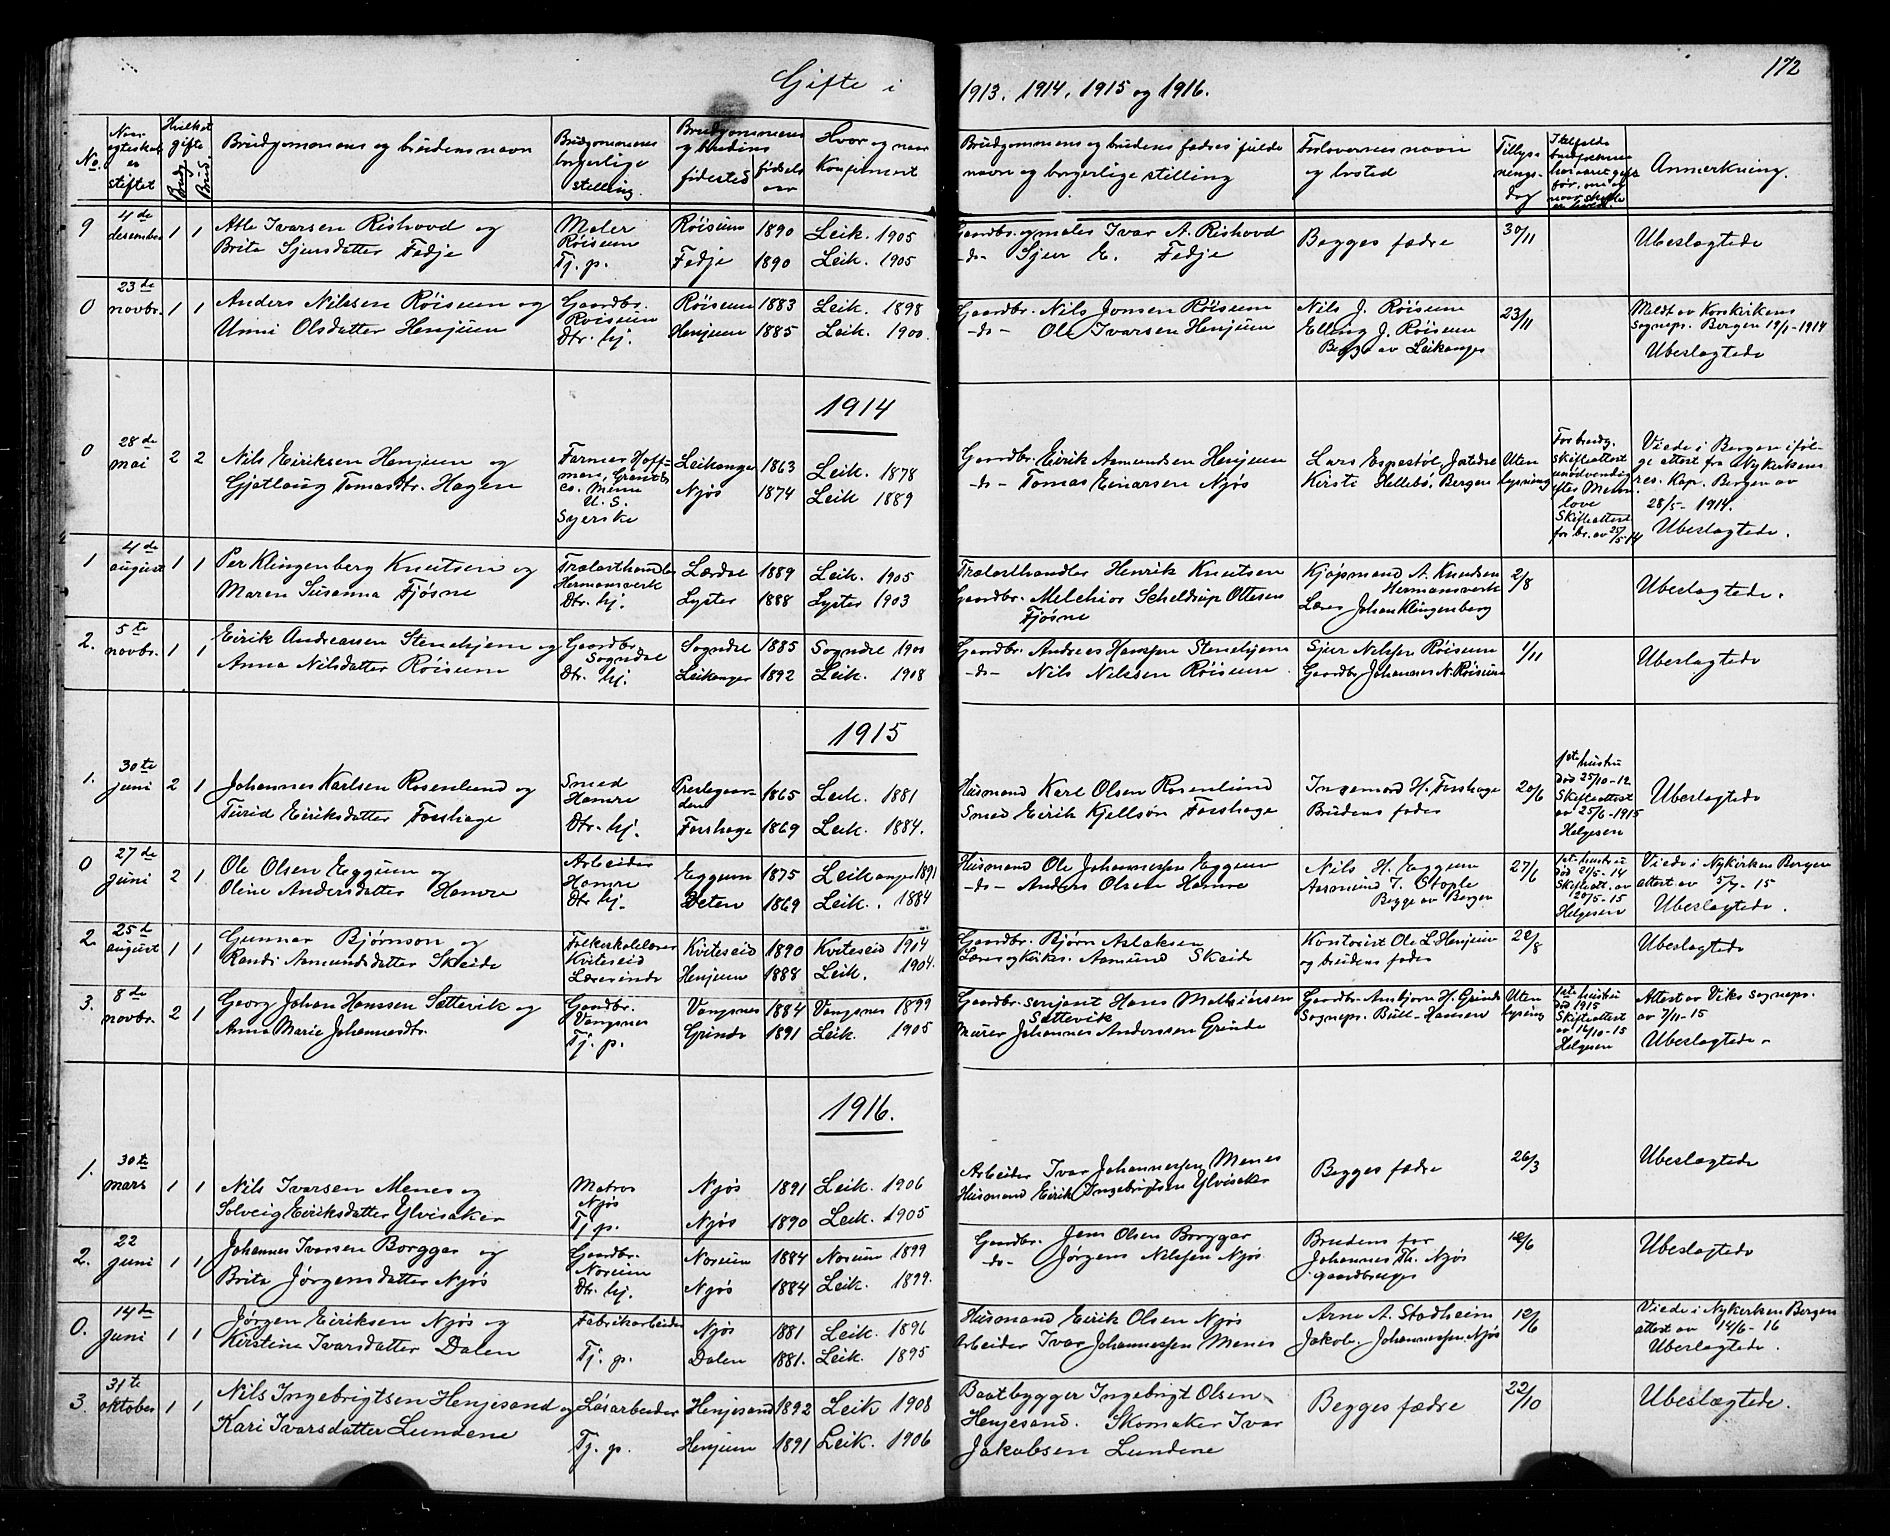 Gifte i 1913, 1914, 1915 og 1916.
172
No.
Naar egteskabet er stiftet
Hvilket gifte
Brudg.
Brud.
Brudgommens og brudens navn
Brudgommens borgerlige stilling.
Brudgommens og brudens fødested
fødselsaar
Hvor og naar Konfirmert
Brudgommens og brudens fædres fulde navn og borgerlige stilling
Forlovernes navn og bosted
Tillysningsdag
Anmerkning.
9 4de desember 1 1 Atle Ivarsen Rishovd og Maler Røisum Røisum 1890 Leik. 1905 Gaardbr. og maler Ivar A. Rishovd Begges fædre 30/11 Ubeslegtede
Brita Sjursdatter Fedje Tj. p. Fedje 1890 Leik. 1905 -do- Sjur E. Fedje
0 23de novbr. 1 1 Anders Nilssen Røisum og Gaardbr. Røisum Røisum 1883 Leik. 1898 Gaardbr. Nils Jonsen Røisum Nils J. Røisum 23/11 Meldt av Korskirkens
Unni Olsdatter Henjum Dtr. hj. Henjum 1885 Leik. 1900. -do- Ole Ivarsen Henjum Elling J. Røisum Sognepr. Bergen 19/1-1914
Begge av Leikanger Ubeslegtede
1914
0 28de mai 2 2 Nils Eiriksen Henjum og Farmer Hoffman, Grant Co. Minn U.S. Leikanger 1863 Leik. 1878 Gaardbr. Eirik Asmundsen Henjum Lars Espestøl, Uten lysning For brudg. skifteattest unødvendig efter Minn. love Viede i Bergen ifølge attest fra Nykirkens
Gjatlaug Tomasdtr. Hagen Syerske Njøs 1874 Leik 1889 -do- Tomas Einarsen Njøs Kirsti Hellebø, Bergen Skifteattest for br. av 25/5-14 res. Kap. Bergen av 28/5-1914.
Ubeslegtede.
1 4de august 1 1 Per Klingenberg Knutsen og Trælasthandler Hermansverk Lærdal 1889 Leik. 1905 Trælasthandler Henrik Knutsen Kjøpmand A. Knudsen 2/8 Ubeslegtede.
Maren Susanna Fjøsne Dtr. hj. Lyster 1888 Lyster 1903 Gaardbr. Melchior Scheldrup Ottesen Hermansverk
Fjøsne Lærer Johan Klingenberg
2. 5te novbr. 1 1 Eirik Andreassen Stenehjem og Gaardbr. Sogndal Sogndal 1885 Sogndal 1900 Gaardbr. Andreas Hanssen Stenehjem Sjur Nelssen Røisum 1/11 Ubeslegtede
Anna Nilsdatter Røisum Dtr. hj. Leikanger 1892 Leik. 1908 -do- Nils Nilssen Røisum Gaardbr. Johannes N. Røisum
1915
1. 30te juni 2 1 Johannes Karlsen Rosenlund og Smed Hamre Prestegaarden 1865 Leik. 1881 Husmand Karl Olsen Rosenlund Ingemond H. Forshage 20/6 1ste hustru død 25/10-12 Ubeslegtede
Turid Eiriksdatter Forshage Dtr. hj. Forshage 1869 Leik. 1884. Smed Eirik Kjellsøn Forshage Brudens fader Skifteattest av 25/6-1915 Helgesen
0 27de juni 2 1 Ole Olsen Eggum og Arbeider Hamre Eggum 1875 Leikanger 1891 Husmand Ole Johannessen Eggum Nils H. Eggum 27/6 1ste hustru død 21/5-14 Viede i Nykirken Bergen
Oline Andersdatter Hamre Dtr. hj. Deten 1869 Leik. 1884 -do- Anders Olsen Hamre Aasmund T. Stople Skifteatt. av 20/5-15 attest av 5/7-15
Begge av Bergen Helgesen Ubeslegtede.
2. 25de august 1 1 Gunnar Bjørnson og Folkeskolelærer Kviteseid Kviteseid 1890 Kviteseid 1904 Gaardbr. Bjørn Aslaksen Kontorist Ole L. Henjum 22/8 Ubeslegtede
Randi Aamundsdatter Skeide Lærerinde Henjum 1888 Leik. 1904. Lærer og kirkes. Aamund Skeide og brudens fader
3. 8de novbr. 2 1 Georg Johan Hanssen Sættevik og Gaardbr. Vangsnes Vangsnes 1884 Vangsnes 1899 Gaardbr. serjant Hans Mathiassen Gaardbr. Ambjørn H. Grinde Uten lysning 1ste hustru død 1915 Attest av Viks sognepr.
Anna Marie Johannesdtr. Tj. p. Grinde 1891 Leik. 1905 Sættevik Sognepr. Bull-Hansen Skifteattest av 16/10-15 av 7/11-15
Murer Johannes Anderssen Grinde Helgesen Ubeslegtede
1916.
1. 30te mars 1 1 Nils Ivarsen Menes og Matros Njøs Njøs 1891 Leik. 1906 Arbeider Ivar Johannessen Menes Begges fædre 26/3 Ubeslegtede
Solveig Eiriksdatter Ylvisaker Tj. p. Njøs 1890 Leik. 1905 Husmand Eirik Ingebrigtsen Ylvisaker
2. 22 juni 1 1 Johannes Ivarsen Borggar og Gaardbr. Noreum Noreum 1884 Noreum 1899 Gaardbr. Jens Olsen Borggar Brudens far 12/6 Ubeslegtede
Brita Jørgensdatter Njøs Dtr. hj. Njøs 1884 Leik. 1899. -do- Jørgens Nilssen Njøs Johannes Th. Njøs
gaardbruger
0. 14de juni 1 1 Jørgen Eiriksen Njøs og Fabrikarbeider Njøs 1881 Leik. 1896 Husmand Eirik Olsen Njøs Arne A. Stadheim 12/6 Viede i Nykirken Bergen
Kirstina Ivarsdatter Dalen Tj. p. Dalen 1881. Leik. 1895 Arbeider Ivar Johannessen Menes Jakob Johannessen Njøs attest av 14/6-16
Ubeslegtede.
3. 31te oktober 1 1 Nils Ingebrigtsen Henjesand og Løsarbeider Henjesand 1892 Leik 1908 Baatbygger Ingebrigt Olsen Begges fædre 22/10 Ubeslægtede.
Kari Ivarsdatter Lundene Tj. p. Henjum 1891 Leik. 1906 Henjesand. Skomaker Ivar
Jakobsen Lundene